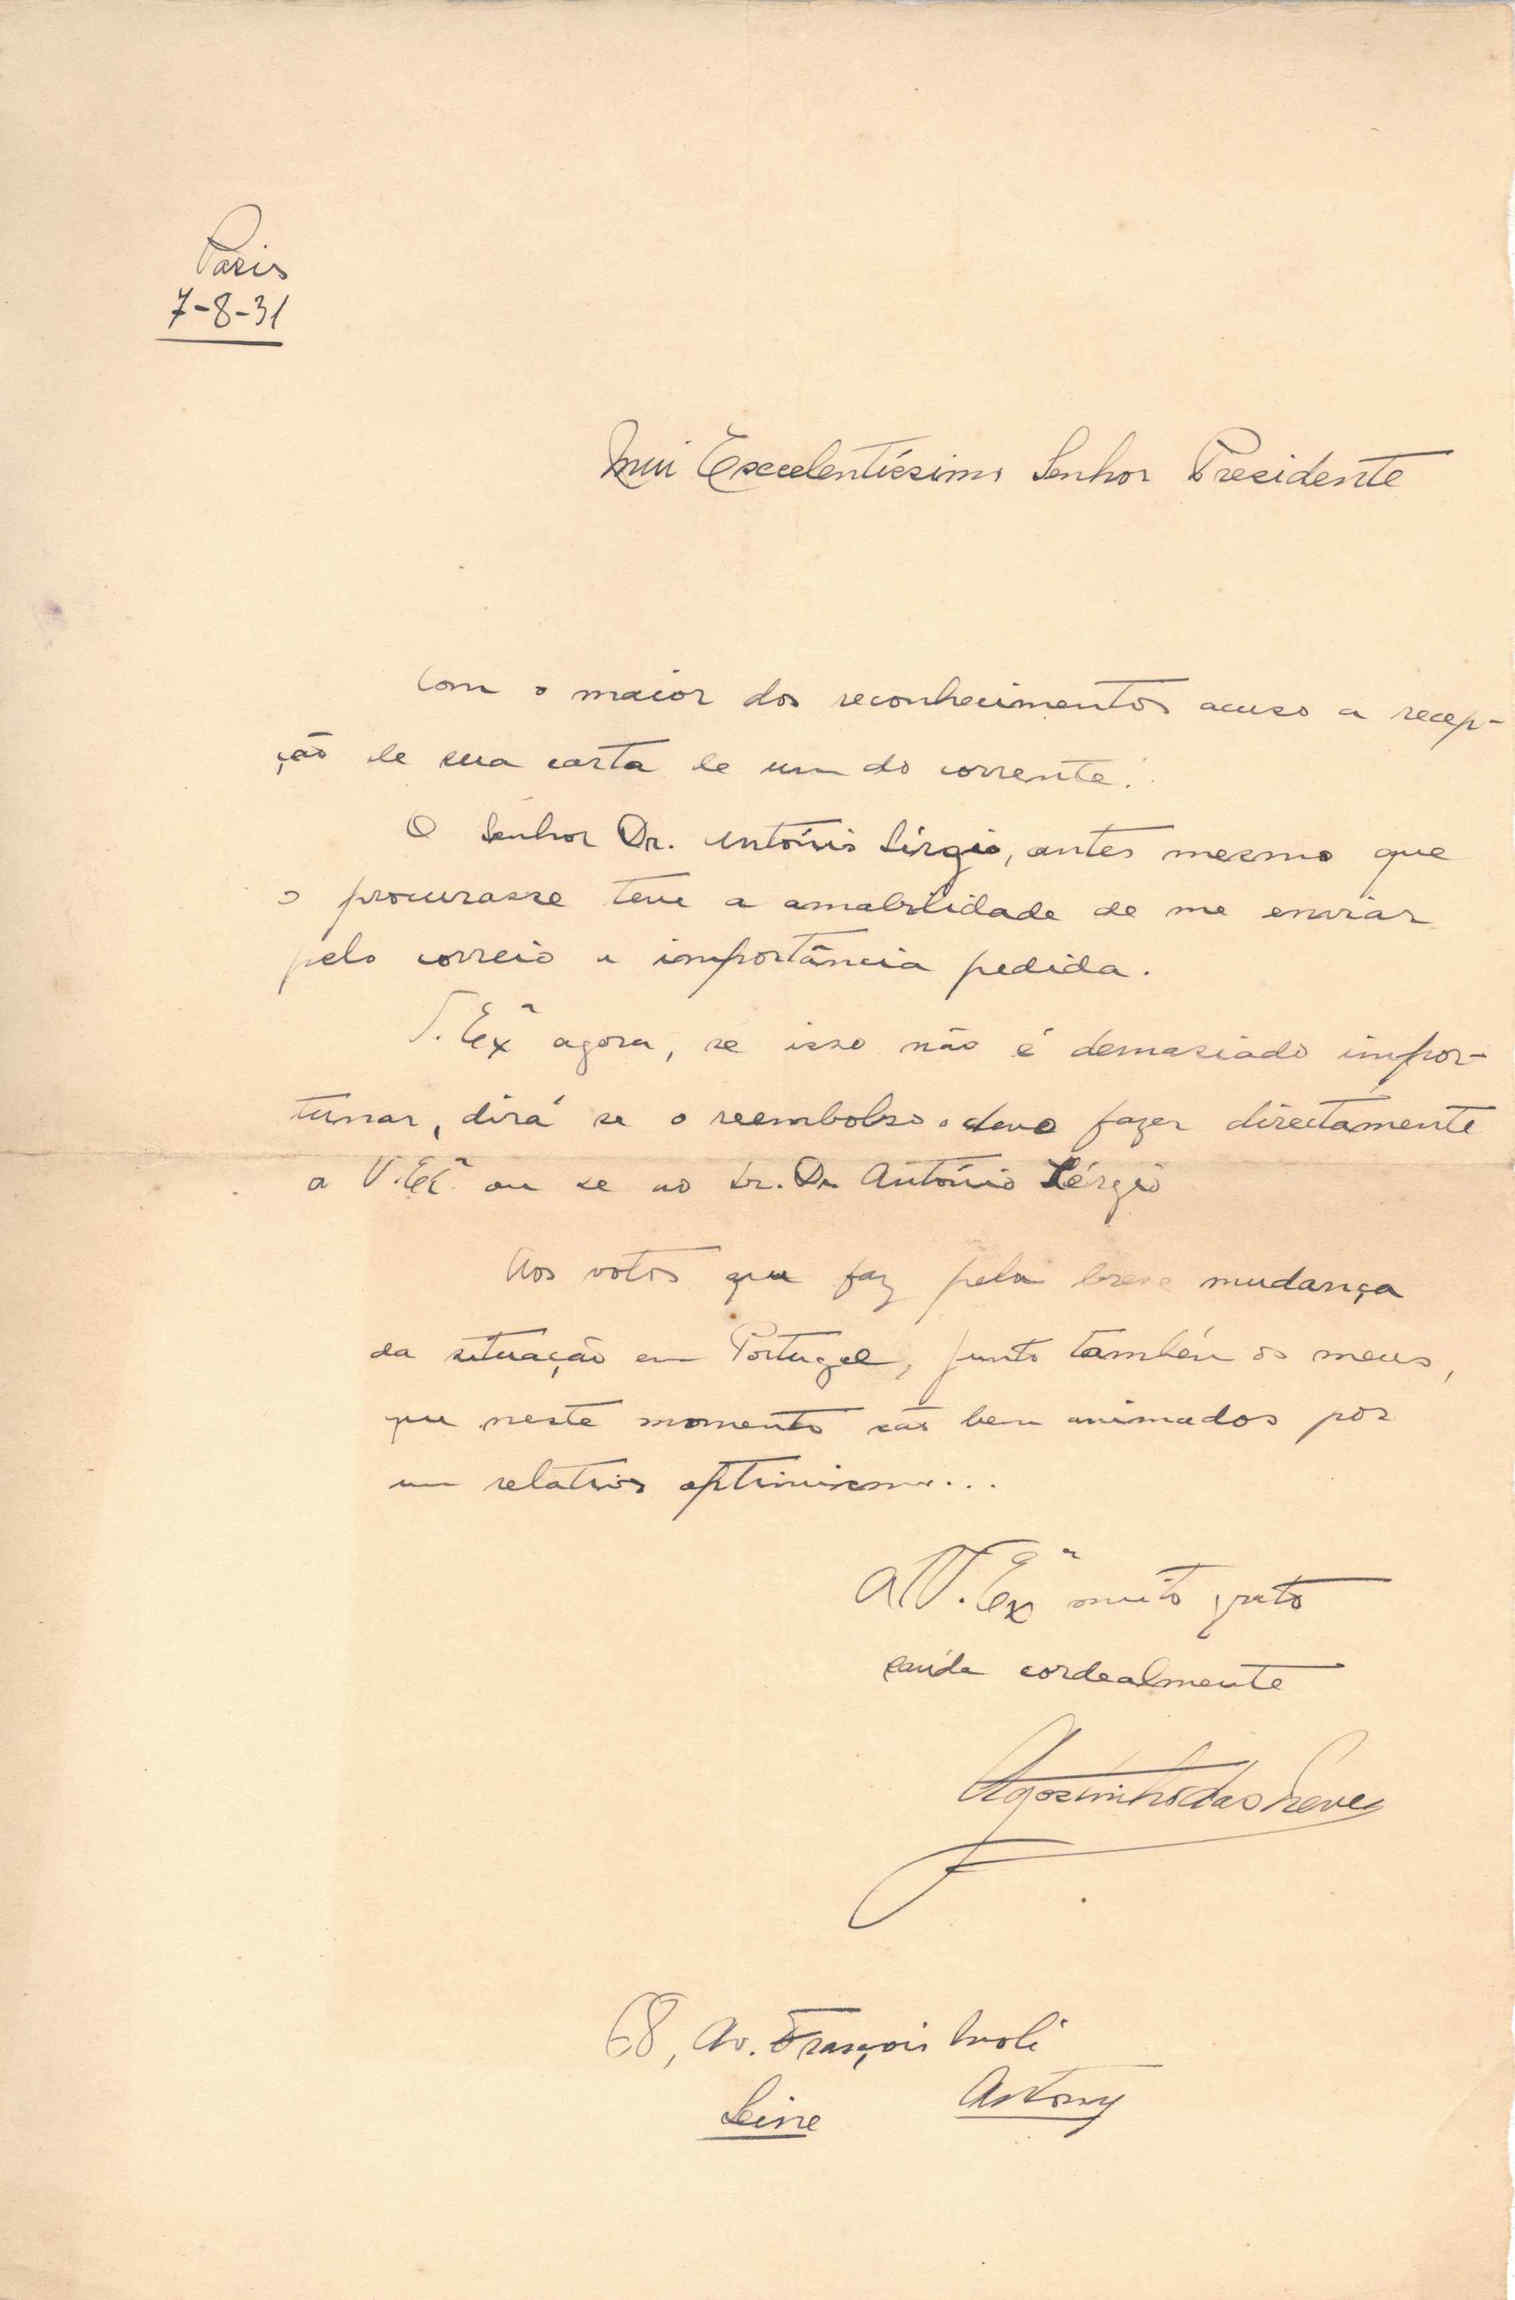 Paris
7-8-31
Mui Excelentíssimo Senhor Presidente
Com o maior dos reconhecimentos acuso a recep-
ção de sua carta de um do corrente.
O Senhor Dr. António Sérgio, antes mesmo que
o procurasse teve a amabilidade de me enviar
pelo correio a importância pedida.
V. Exª agora, se isso não é demasiado impor-
tunar, dirá se o reembolso o devo fazer directamente
a V. Exª ou se ao Sr. Dr. António Sérgio
Aos votos que faz pela breve mudança
da situação em Portugal, junto também os meus,
que neste momento são bem animados por
um relativo optimismo...
A V. Exª muito grato
saúda cordealmente
Agostinho das Neves
68, Av. François
Antony
Seine